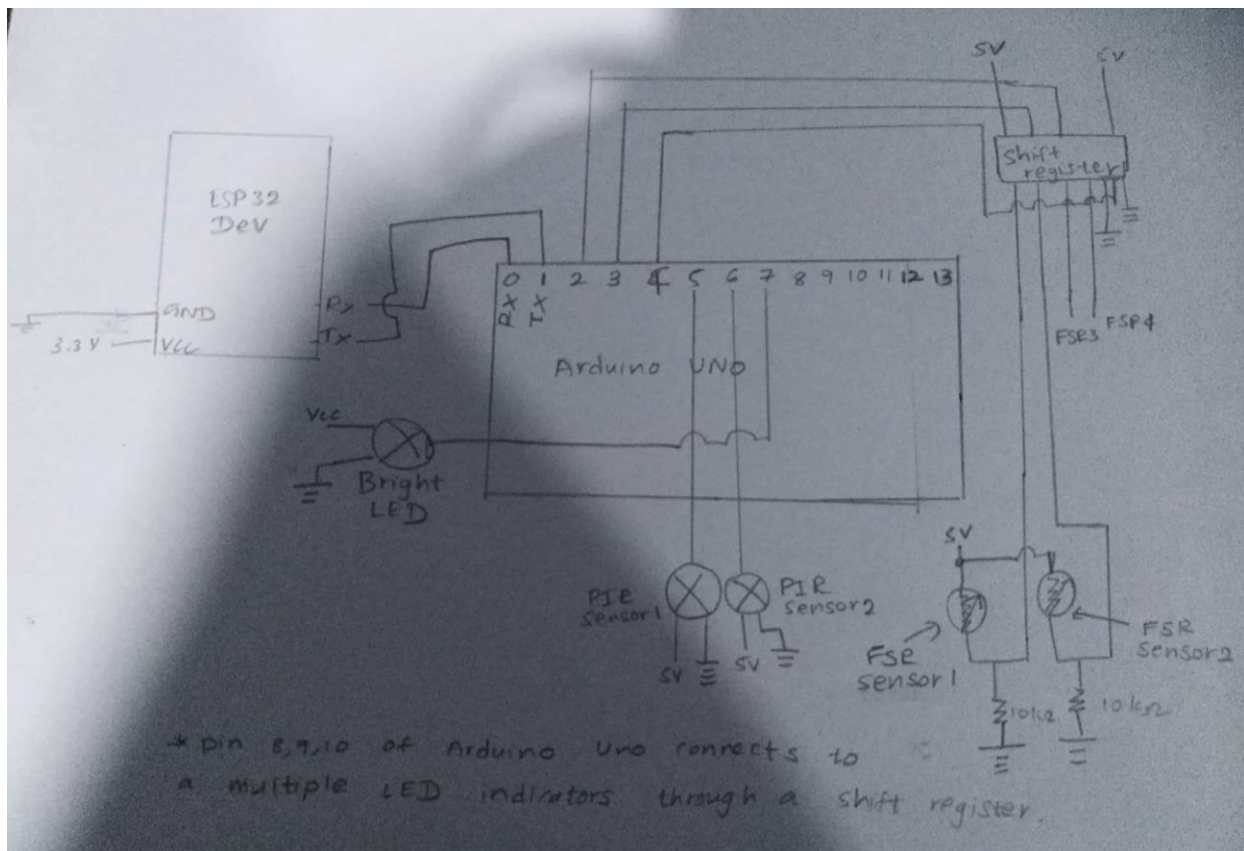 5V
5V
Shift
register
ESP 32
Dev
0 1 2 3 4 5 6 7 8 9 10 11 12 13
RX
TX
Rx
GND
Tx
3.3 V
VCC
FSR3
FSR4
Arduino UNO
Vcc
Bright
LED
5V
PIR
sensor1
PIR
sensor2
5V
5V
FSR
sensor1
FSR
sensor2
10kΩ
10kΩ
* pin 8,9,10 of Arduino Uno connects to
a multiple LED indicators through a shift register.